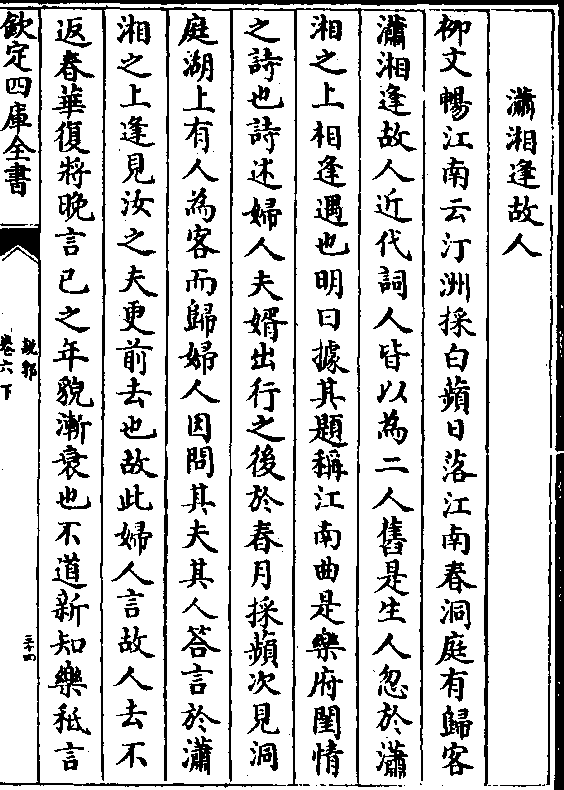 瀟湘逢故人
柳文暢江南云汀洲採白蘋日落江南春洞庭有歸客
瀟湘逢故人近代詞人皆以為二人舊是生人忽於瀟
湘之上相逢遇也明曰據其題稱江南曲是樂府閨情
之詩也詩述婦人夫婿出行之後於春月採蘋次見洞
庭湖上有人為客而歸婦人因問其夫其人答言於瀟
湘之上逢見汝之夫更前去也故此婦人言故人去不
返春華復將晚言已之年貌漸衰也不道新知樂秪言
欽定四庫全書
說郛
卷六下
三十四